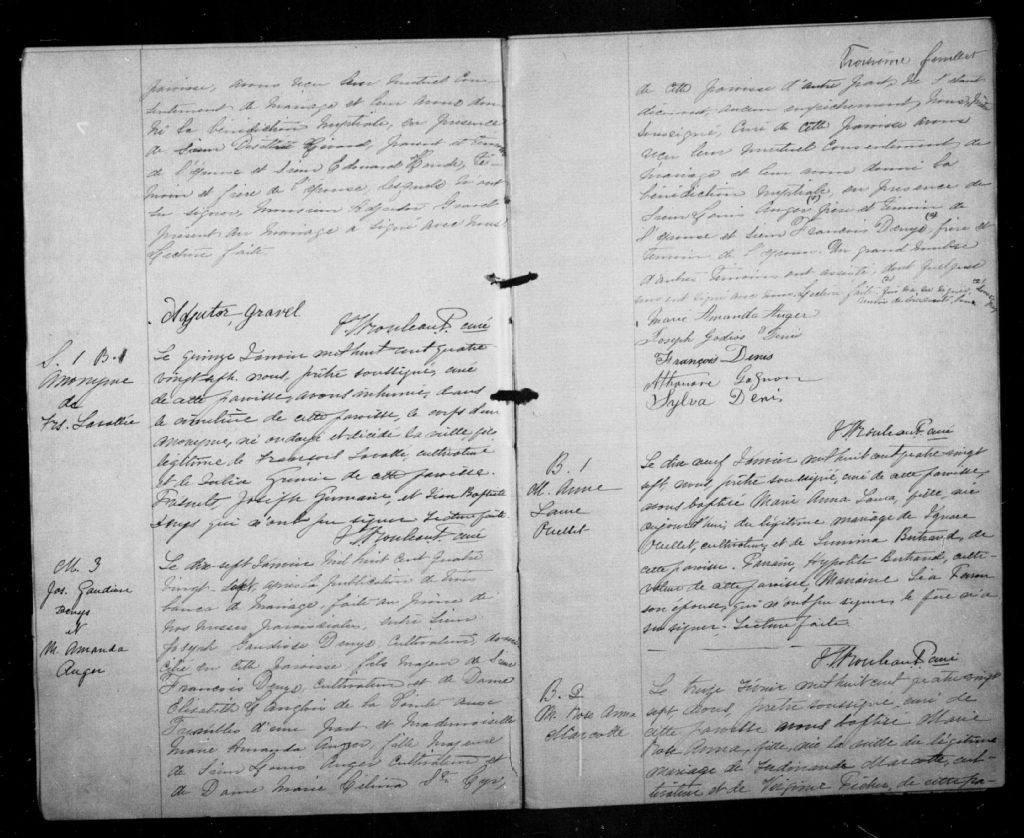 paroisse, avons reçu leur mutuel con-
sentement de mariage et leur avons don-
né la bénédiction nuptiale, en présence
de Sieur Girard, parent et témoin
de l'époux et Sieur Edouard té-
moin et frère de l'épouse, lesquels n'ont
su signer, Monsieur Adjutor Gravel
présent au mariage a signé avec nous
Lecture faite
Adjutor Gravel
J. Rouleau Ptre curé
S. 1 B. 1
Anonyme
de
Frs. Lavallée
Le quinze Janvier mil huit cent quatre
vingt sept nous, prêtre soussigné, curé
de cette paroisse, avons inhumé, dans
le cimetière de cette paroisse, le corps d'un
anonyme, né ondoyé et décédé la veille fils
légitime de François cultivateur
et de Julia Grenier de cette paroisse.
Présents, Joseph Germain, et Jean Baptiste
qui n'ont pu signer Lecture faite.
J. Rouleau Ptre curé
M. 3
Jos. Gaudiose
Denys
et
M. Amanda
Auger
Le dix sept Janvier mil huit cent quatre
vingt sept, après la publication de trois
bancs de mariage, faite au prône de
nos messes paroissiales, entre Sieur
Joseph Gaudiose Denys cultivateur, domi-
cilié en cette paroisse, fils majeur de Sieur
François Denys, cultivateur et de Dame
Elisabeth Langlois de la Pointe aux
Trembles d'une part et Mademoiselle
Marie Amanda Auger, fille majeure
de Sieur Louis Auger cultivateur et
de Dame Marie Célina St. Cyr,
Troisième feuillet
de cette paroisse d'autre part, ne s'étant
découvert aucun empêchement, nous, prêtre
soussigné, curé de cette paroisse avons
reçu leur mutuel consentement de
mariage et leur avons donné la
bénédiction nuptiale, en présence de
Sieur Louis Auger, père et témoin de
l'épouse et Sieur François Denys, frère et
témoin de l'époux. Un grand nombre
d'autres témoins ont assisté, dont quelques
uns ont signé avec nous. Lecture faite
Marie Amanda Auger
Joseph Godios Denis
François Denis
Athanase Gagnon
Sylva Denis
J. Rouleau Ptre curé
B. 1
M. Anne
Laure
Ouellet
Le dix neuf Janvier mil huit cent quatre vingt
sept nous, prêtre soussigné, curé de cette paroisse,
avons baptisé Marie Anna Laura, fille, née
aujourd'hui, du légitime mariage de Ignace
Ouellet, cultivateur, et de Lumina Bertrand, de
cette paroisse. Parrain, Hypolite Bertrand, culti-
vateur de cette paroisse, Marraine Léa
son épouse, qui n'ont pu signer, le père n'a
su signer. Lecture faite
J. Rouleau Ptre curé
B. 2
M. Rose Anna
Marcotte
Le treize Février mil huit cent quatre vingt
sept nous, prêtre soussigné, curé de
cette paroisse avons baptisé Marie
Rose Anna, fille, née la veille du légitime
mariage de Ferdinand Marcotte, cul-
tivateur et de Virginie de cette pa-